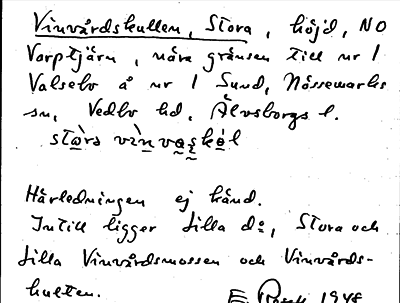 Vinvårdskullen, Stora, höjd, NO
Vorptjärn, nära gränsen till nr 1
Valsebo å nr 1 Sund, Nössemarks
sn, Vedbo hd, Älvsborgs l.
Härledningen ej känd.
Intill ligger Lilla d:o, Stora och
Lilla Vinvårdsmossen och Vinvårds-
hulten.
E. 1948